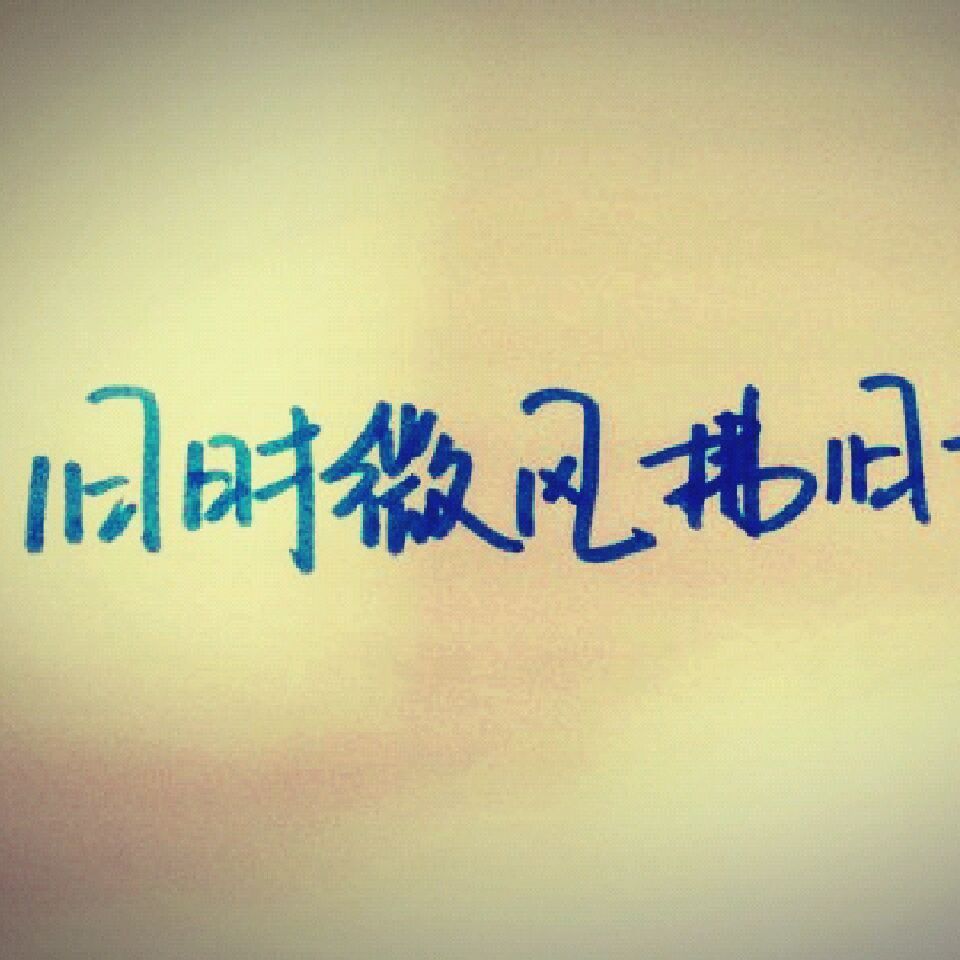 旧时微风拂旧